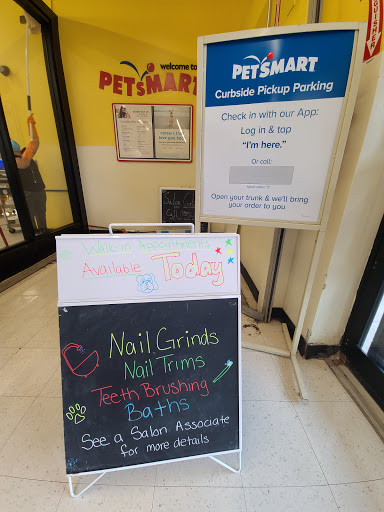 welcome to
PETSMART
PETSMART
Curbside Pickup Parking
Check in with our App:
Log in & tap
"I'm here."
Or call:
Open your trunk & we'll bring
your order to you
Walk-in Appointments
Available Today
Nail Grinds
Nail Trims
Teeth Brushing
Baths
See a Salon Associate
for more details